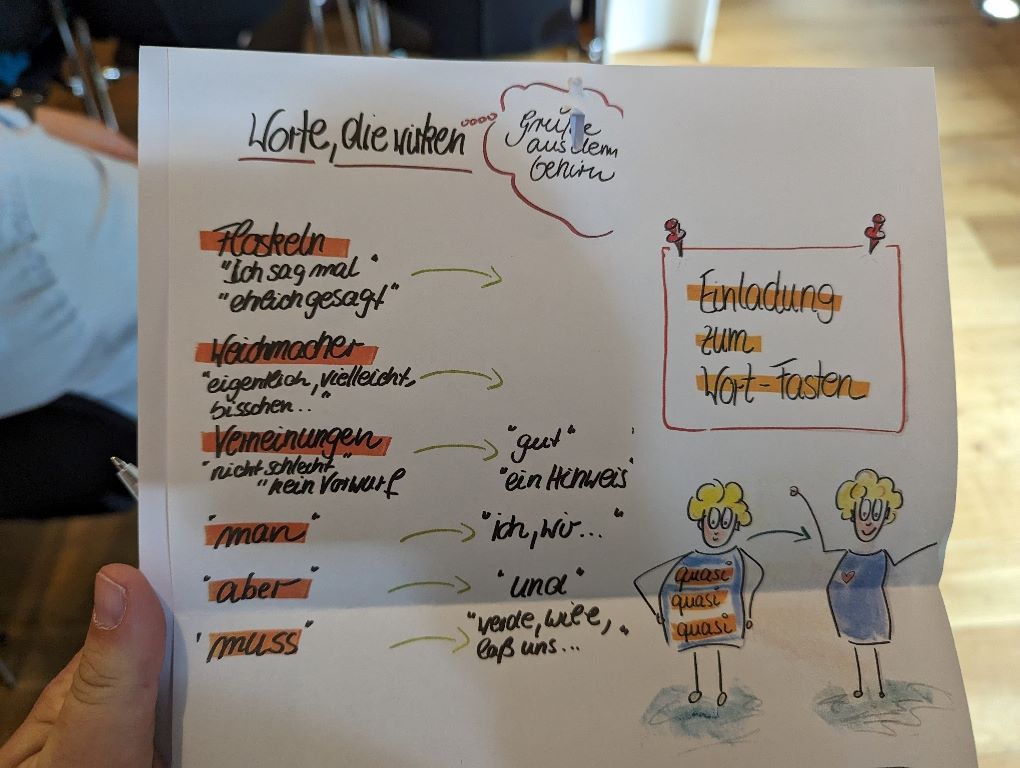 Worte, die wirken
Grüße
aus dem
Gehirn
Floskeln
"Ich sag mal"
"ehrlich gesagt"
Weichmacher
"eigentlich, vielleicht,
bisschen.."
Verneinungen
"nicht schlecht"
"kein Vorwurf
"gut"
"ein Hinweis"
"man"
"ich, wir..."
"aber"
"und"
"muss"
"werde, will,
laß uns..."
Einladung
zum
Wort-Fasten
quasi
quasi
quasi